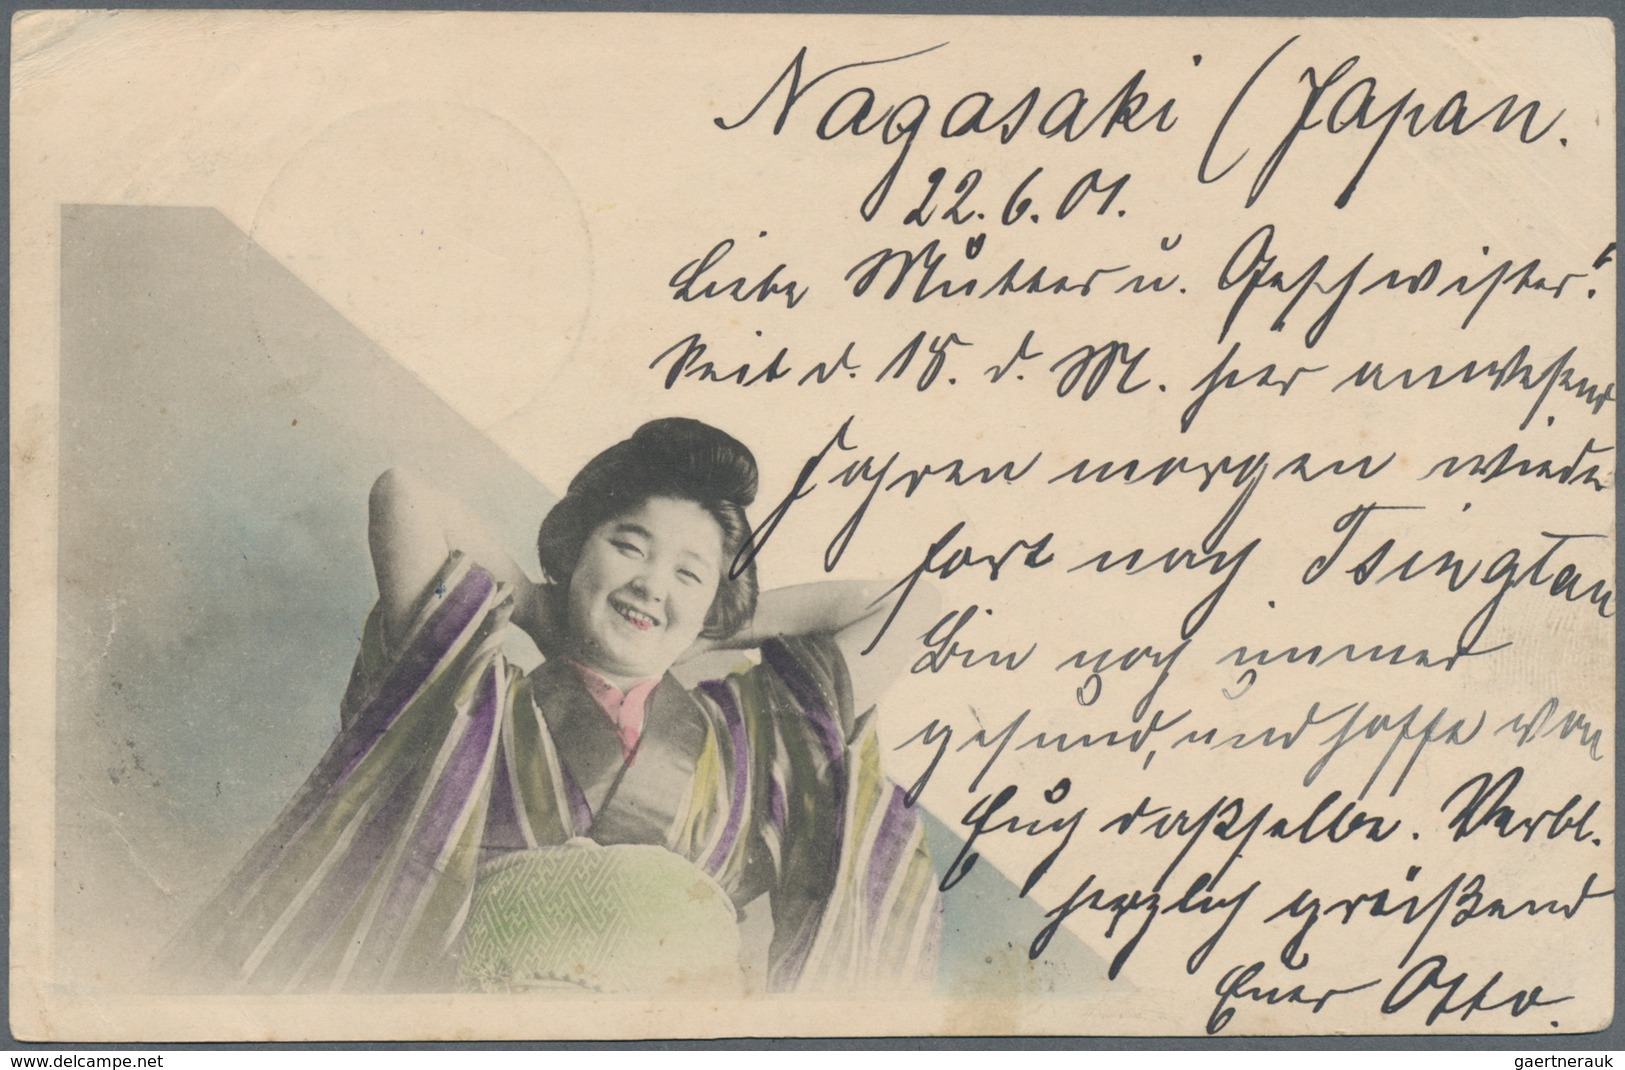 Nagasaki (Japan.
22.6.01.
Liebe Mutter u. Geschwister!
Seit d. 18. d. M. hier anwesend
fahren morgen wieder
fort nach Tsingtau
Bin noch immer
gesund, und hoffe von
Euch dasselbe. Verbl.
herzlich grüßend
Euer Otto.
delcampe.net
gaertnerauk